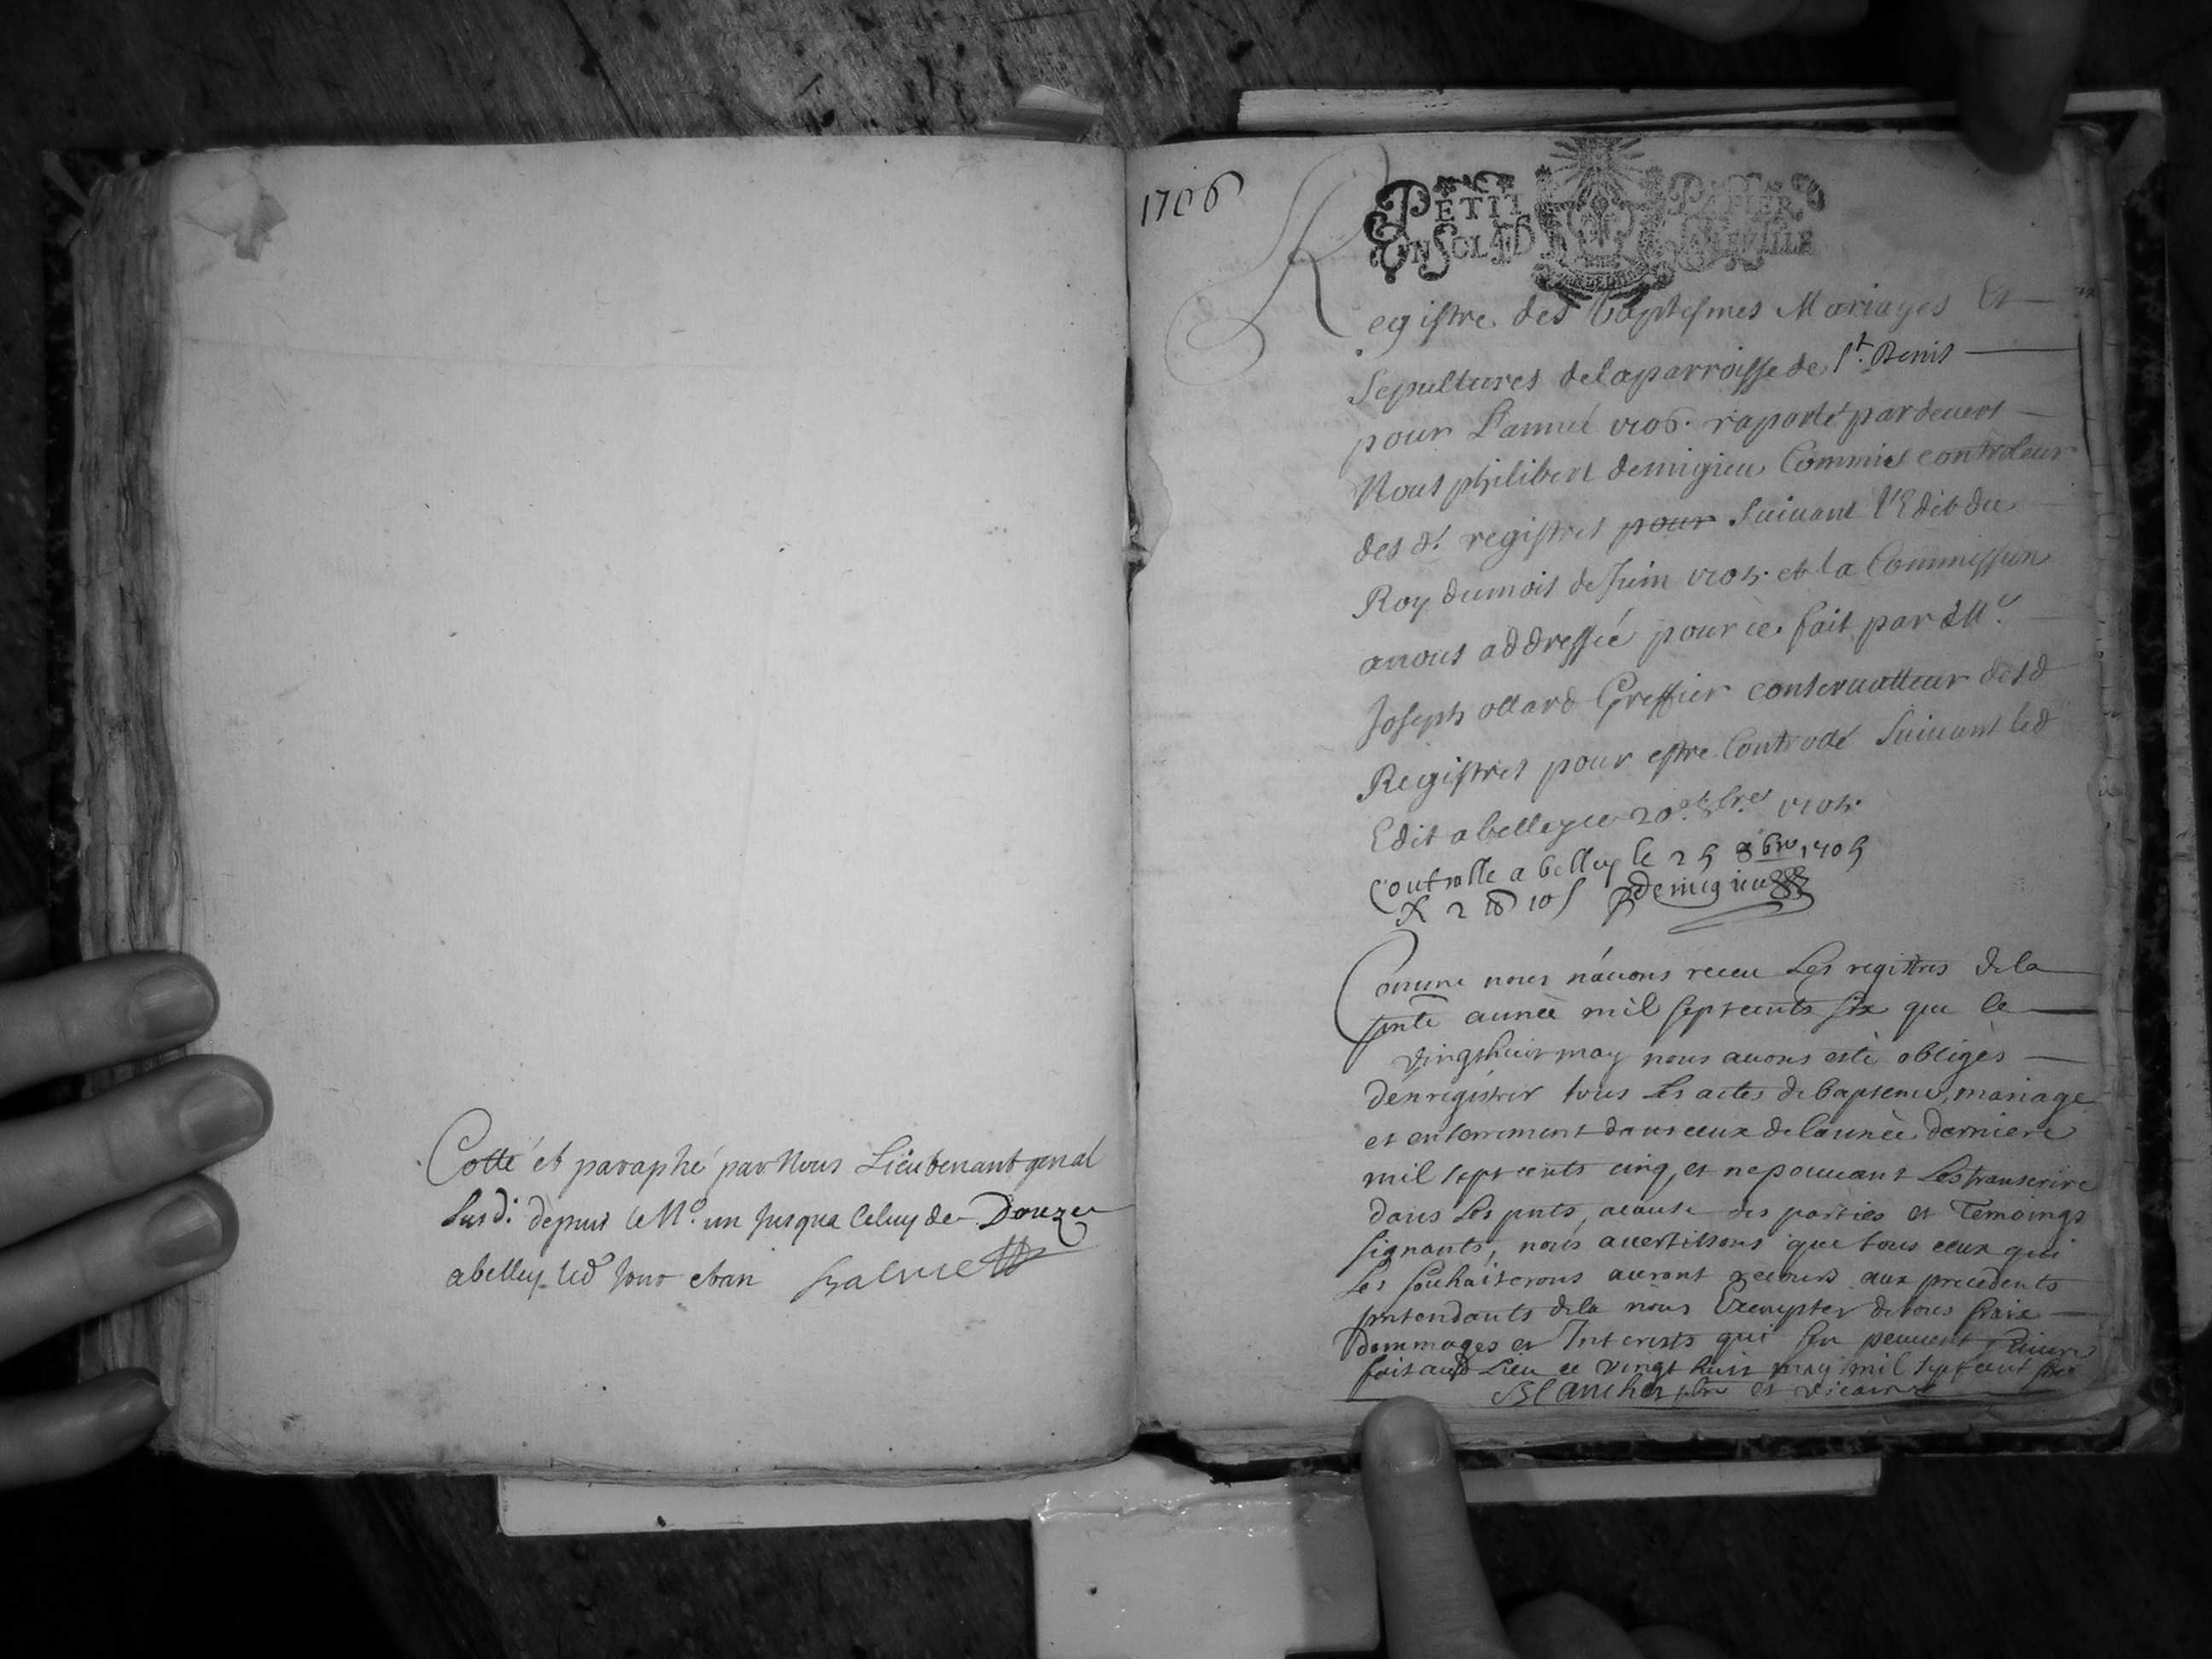 Cotté et paraphé par Nous Lieutenant genal
Susd. depuis le No. un Jusqua Celuy de Douze
abelley led Jour et an
1706
PETIT PAPIER
EN SOLD
Registre des baptesmes Mariages Et
Sepultures delaparroisse de St. Denis
pour L'année 1706. raporté pardevers
Nous philibert demigieu Commis controleur
des dt registres pour Suivant l'Edit du
Roy dumois de Juin 1705. et la Commission
anous addressée pour ce fait par Me.
Joseph ollard Greffier conservatteur desd
Registres pour estre Controllé Suivant led
Edit abelley ce 20e. 8bres 1705.
Controlle a belley le 25 8bre 1705
demigieu
Comme nous n'avons receu Les registres de la
pnte année mil septcents six que le
vingthuit may nous avons esté obligés
d'enregistrer tous Les actes de baptême, mariage
et enterrement dans ceux de l'année derniere
mil sept cents cinq, et nepouvant Les transcrire
dans Les pnts, acause des parties et Temoings
signants, nous avertissons que tous ceux qui
Les souhaiterons auront recours aux precedents
pretendants dela nous Exempter de tous frais
dommages et Interests qui sen peuvent suivre
fait aud Lieu ce vingt huit may mil septcent six
Blanchet ptre et vicaire